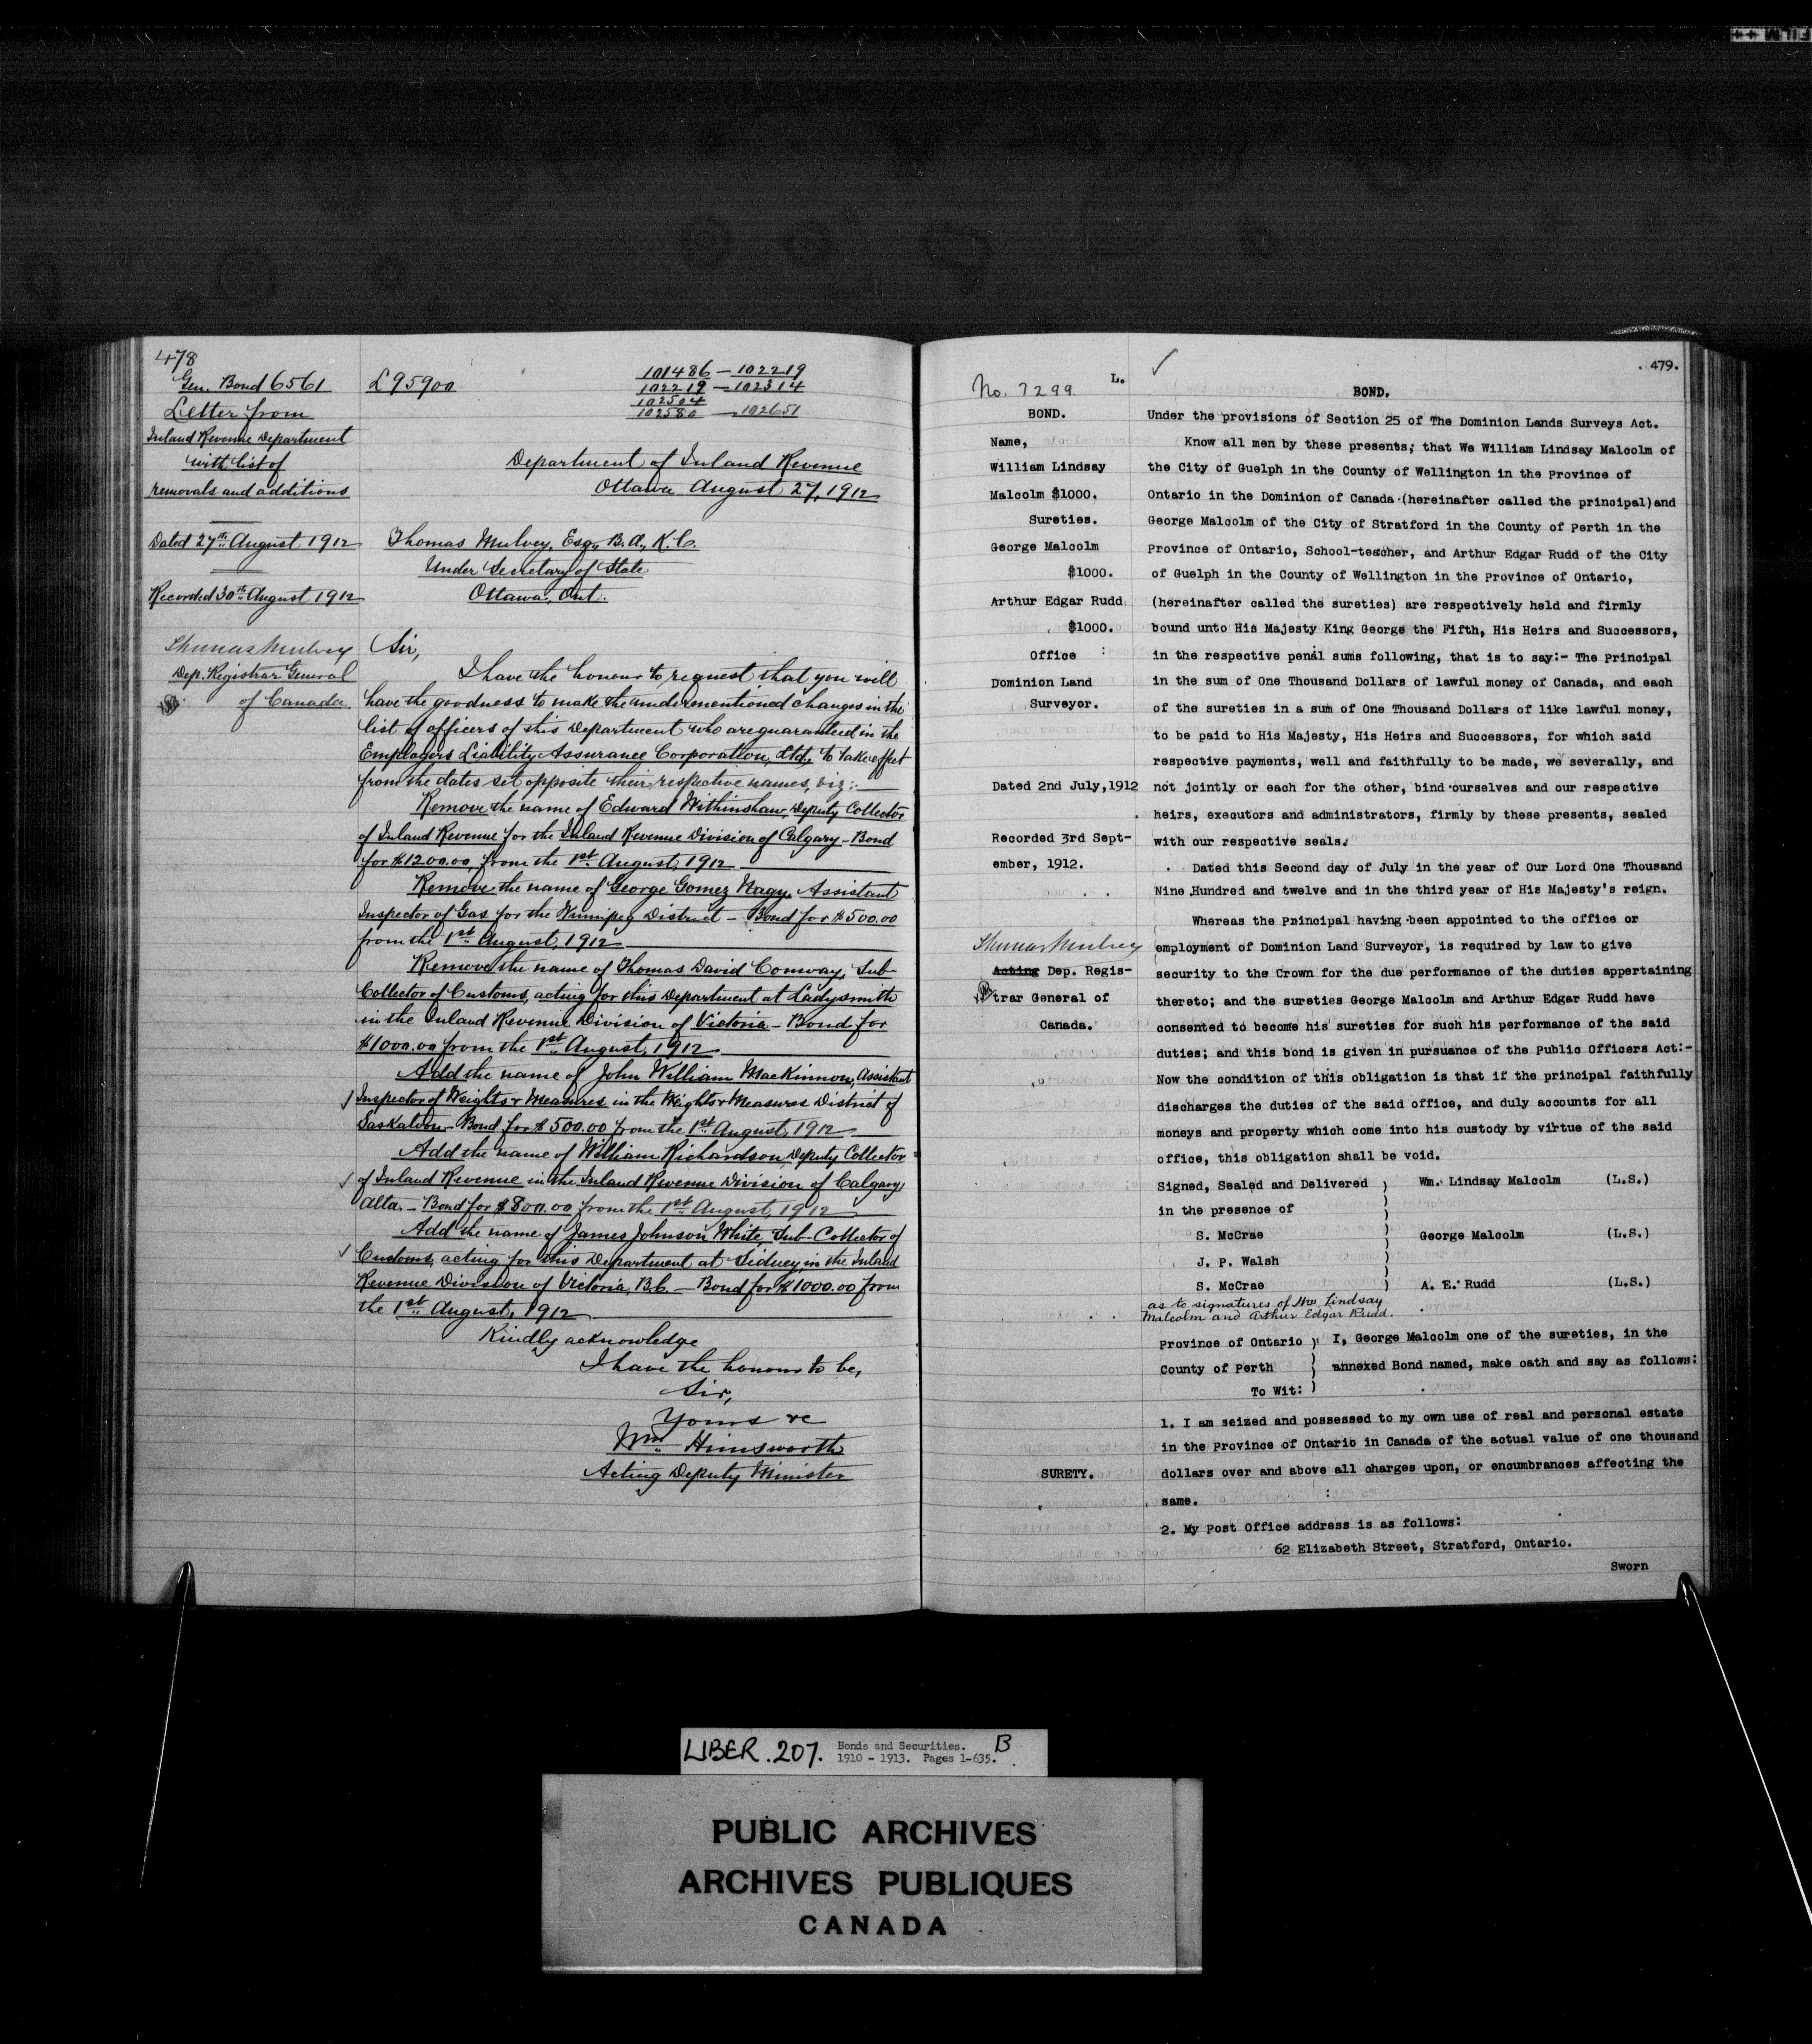 478
Gen. Bond 6561
Letter from
Inland Revenue Department
with list of
removals and additions
Dated 27th August 1912
Recorded 30th August 1912
Thomas Mulvey
Dep. Registrar General
of Canada.
£95900
101486 — 102219
102219 — 102314
102504
102580 — 102651
Department of Inland Revenue
Ottawa August 27, 1912
Thomas Mulvey, Esq., B.A., K.C.
Under Secretary of State
Ottawa, Ont.
Sir,
I have the honour to request that you will
have the goodness to make the undermentioned changes in the
list of officers of this Department who are guaranteed in the
Employers Liability Assurance Corporation, Ltd., to take effect
from the dates set opposite their respective names, viz:—
Remove the name of Edward Withinshaw, Deputy Collector
of Inland Revenue for the Inland Revenue Division of Calgary – Bond
for $1200.00, from the 1st August, 1912
Remove the name of George Gomez Nagy, Assistant
Inspector of Gas for the Winnipeg District – Bond for $500.00
from the 1st August, 1912
Remove the name of Thomas David Conway, Sub-
Collector of Customs, acting for this Department at Ladysmith
in the Inland Revenue Division of Victoria – Bond for
$1000.00 from the 1st August, 1912
Add the name of John William MacKinnon, Assistant
Inspector of Weights & Measures in the Weights & Measures District of
Saskatoon – Bond for $500.00 from the 1st August, 1912
Add the name of William Richardson, Deputy Collector
of Inland Revenue in the Inland Revenue Division of Calgary,
Alta. – Bond for $800.00 from the 1st August, 1912
Add the name of James Johnson White, Sub-Collector of
Customs, acting for this Department at Sidney, in the Inland
Revenue Division of Victoria, B.C. – Bond for $1000.00 from
the 1st August, 1912
Kindly acknowledge
I have the honour to be,
Sir,
Yours &c
Wm. Himsworth
Acting Deputy Minister
479.
No. 7299
L.
BOND.
Name,
William Lindsay
Malcolm $1000.
Sureties.
George Malcolm
$1000.
Arthur Edgar Rudd
$1000.
Office
Dominion Land
Surveyor.
Dated 2nd July, 1912
Recorded 3rd Sept-
ember, 1912.
Thomas Mulvey
Acting Dep. Regis-
trar General of
Canada.
SURETY.
BOND.
Under the provisions of Section 25 of The Dominion Lands Surveys Act.
Know all men by these presents; that We William Lindsay Malcolm of
the City of Guelph in the County of Wellington in the Province of
Ontario in the Dominion of Canada (hereinafter called the principal) and
George Malcolm of the City of Stratford in the County of Perth in the
Province of Ontario, School-teacher, and Arthur Edgar Rudd of the City
of Guelph in the County of Wellington in the Province of Ontario,
(hereinafter called the sureties) are respectively held and firmly
bound unto His Majesty King George the Fifth, His Heirs and Successors,
in the respective penal sums following, that is to say:- The Principal
in the sum of One Thousand Dollars of lawful money of Canada, and each
of the sureties in a sum of One Thousand Dollars of like lawful money,
to be paid to His Majesty, His Heirs and Successors, for which said
respective payments, well and faithfully to be made, we severally, and
not jointly or each for the other, bind ourselves and our respective
heirs, executors and administrators, firmly by these presents, sealed
with our respective seals.
Dated this Second day of July in the year of Our Lord One Thousand
Nine Hundred and twelve and in the third year of His Majesty's reign.
Whereas the Principal having been appointed to the office or
employment of Dominion Land Surveyor, is required by law to give
security to the Crown for the due performance of the duties appertaining
thereto; and the sureties George Malcolm and Arthur Edgar Rudd have
consented to become his sureties for such his performance of the said
duties; and this bond is given in pursuance of the Public Officers Act:-
Now the condition of this obligation is that if the principal faithfully
discharges the duties of the said office, and duly accounts for all
moneys and property which come into his custody by virtue of the said
office, this obligation shall be void.
Signed, Sealed and Delivered ) Wm. Lindsay Malcolm (L.S.)
in the presence of )
S. McCrae ) George Malcolm (L.S.)
J. P. Walsh )
S. McCrae ) A. E. Rudd (L.S.)
as to signatures of Wm. Lindsay
Malcolm and Arthur Edgar Rudd.
Province of Ontario ) I, George Malcolm one of the sureties, in the
County of Perth ) annexed Bond named, make oath and say as follows:
To Wit: )
1. I am seized and possessed to my own use of real and personal estate
in the Province of Ontario in Canada of the actual value of one thousand
dollars over and above all charges upon, or encumbrances affecting the
same.
2. My Post Office address is as follows:
62 Elizabeth Street, Stratford, Ontario.
Sworn
LIBER. 207. Bonds and Securities. B
1910 - 1913. Pages 1-635.
PUBLIC ARCHIVES
ARCHIVES PUBLIQUES
CANADA